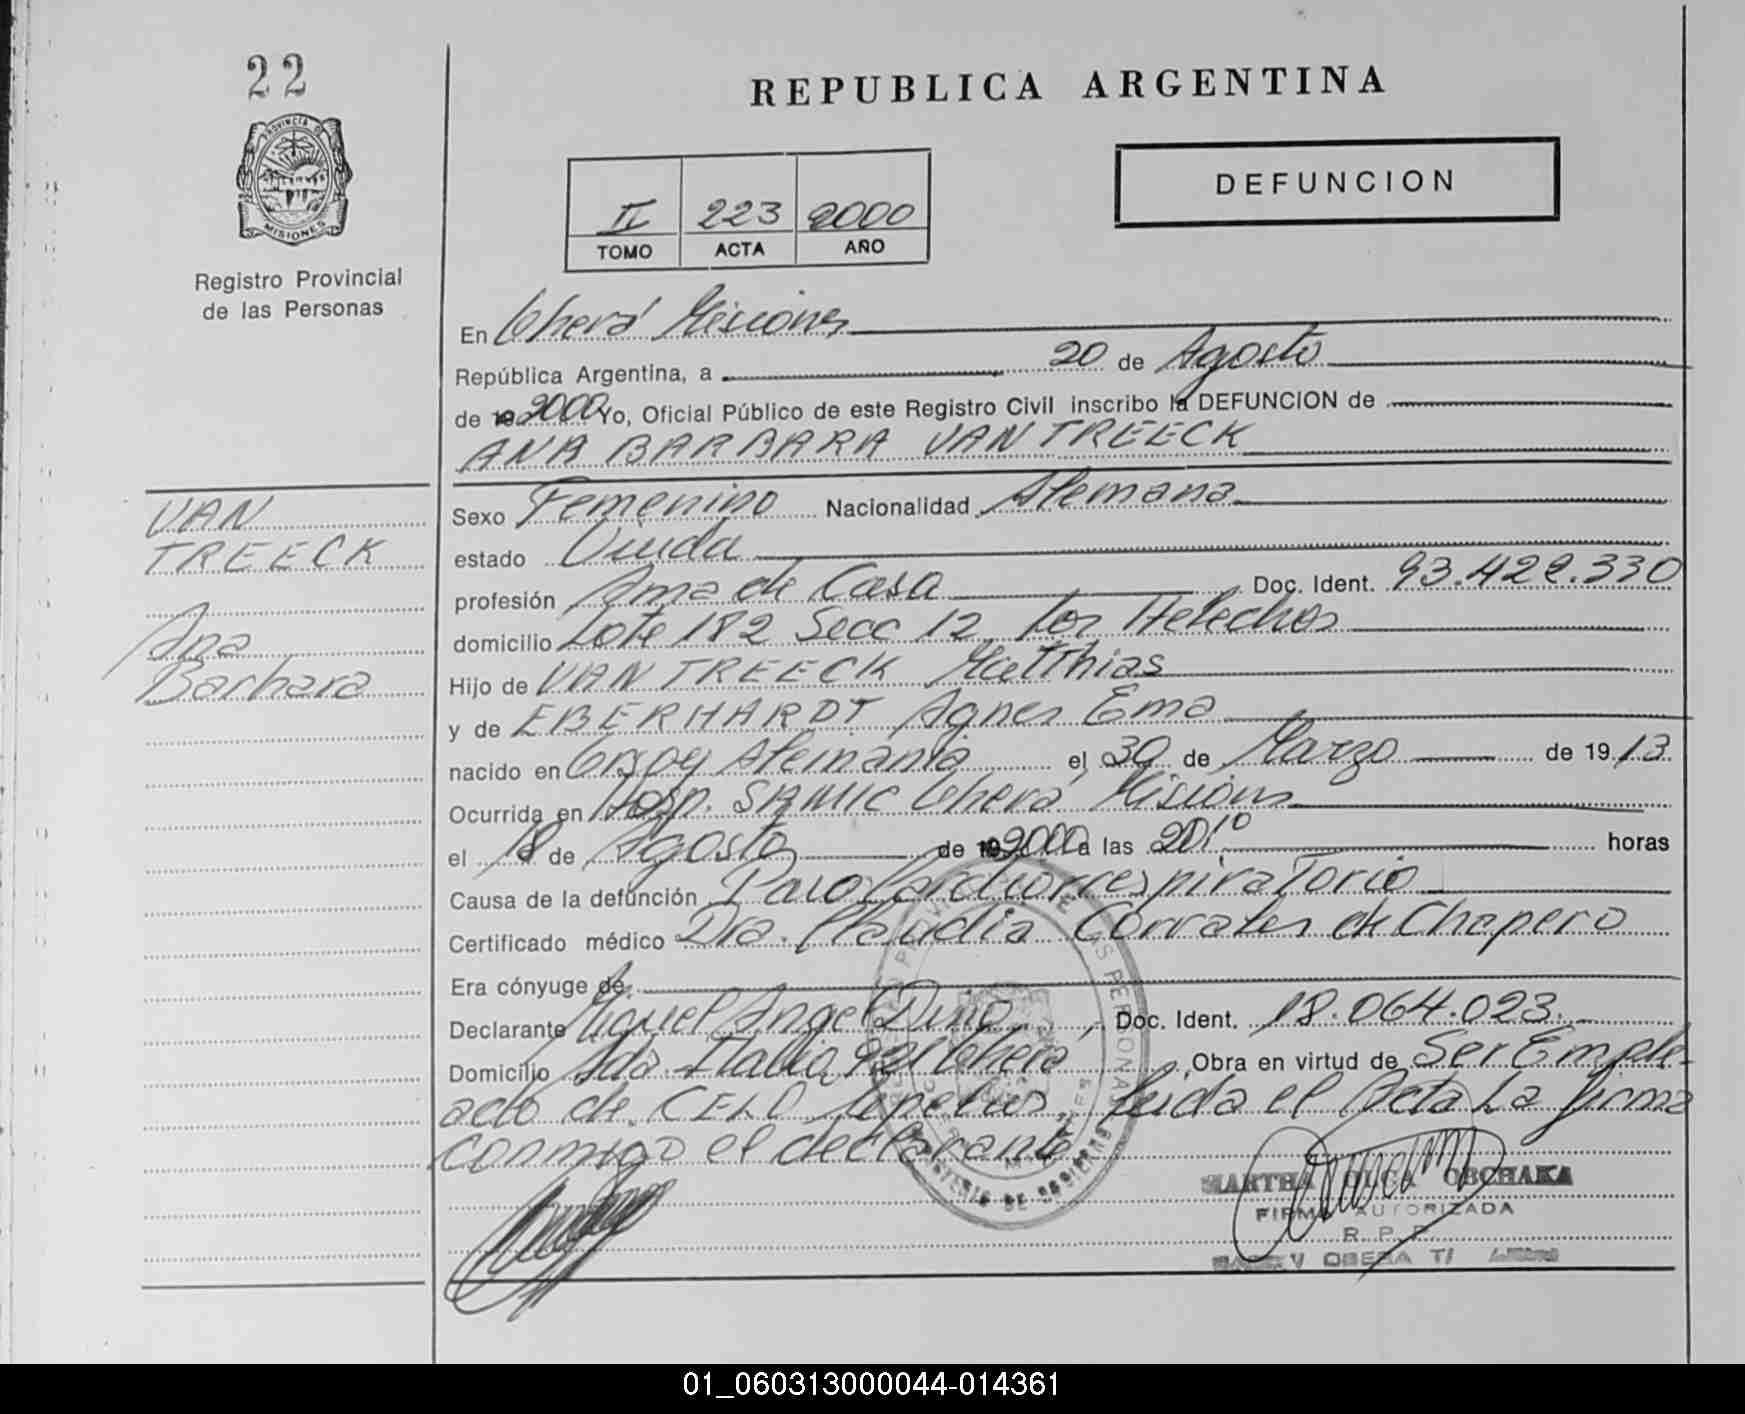 22
PROVINCIA DE
MISIONES
Registro Provincial
de las Personas
REPUBLICA ARGENTINA
DEFUNCION
II 223 2000
TOMO ACTA AÑO
En Oberá Misiones
República Argentina, a 20 de Agosto
de 19 2000 Yo, Oficial Público de este Registro Civil inscribo la DEFUNCION de
ANA BARBARA VAN TREECK
VAN
TREECK
Ana
Barbara
Sexo Femenino Nacionalidad Alemana
estado Viuda
profesión Ama de Casa Doc. Ident. 93.422.330
domicilio Lote 182 Secc 12, Los Helechos
Hijo de VAN TREECK Matthias
y de EBERHARDT Agnes Ema
nacido en Alemania el 30 de Marzo de 1913
Ocurrida en Hosp. SAMIC Oberá Misiones
el 18 de Agosto de 19 2000 a las 20,10 horas
Causa de la defunción Paro Cardiorrespiratorio
Certificado médico Dra. Claudia Corrales de Chapero
Era cónyuge de
Declarante Miguel Angel Doc. Ident. 18.064.023
Domicilio Italia Oberá, Obra en virtud de Ser Emple-
ado de CELO Sepelios, leida el Acta La firma
conmigo el declarante
MARTHA OLGA OBCHAKA
FIRMA AUTORIZADA
R. P. P.
OBERA
01_060313000044-014361